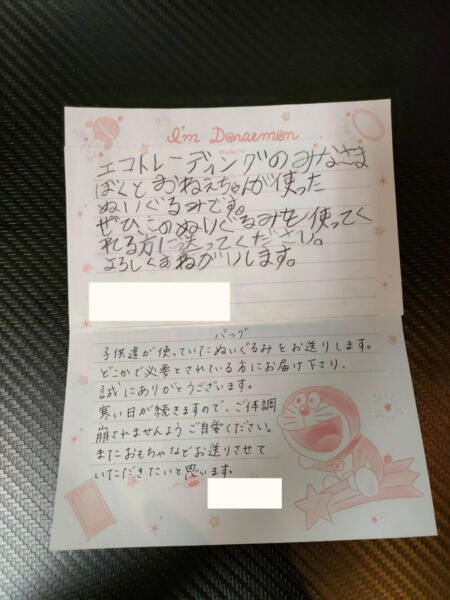 I'm Doraemon
エコトレーディングのみなさま
ぼくとおねえちゃんが使った
ぬいぐるみです。
ぜひこのぬいぐるみを使ってく
れる方に送ってください。
よろしくおねがいします。
バッグ
子供達が使っていたぬいぐるみをお送りします。
どこかで必要とされている方にお届け下さり、
誠にありがとうございます。
寒い日が続きますので、ご体調
崩されませんようご自愛ください。
またおもちゃなどお送りさせて
いただきたいと思います。